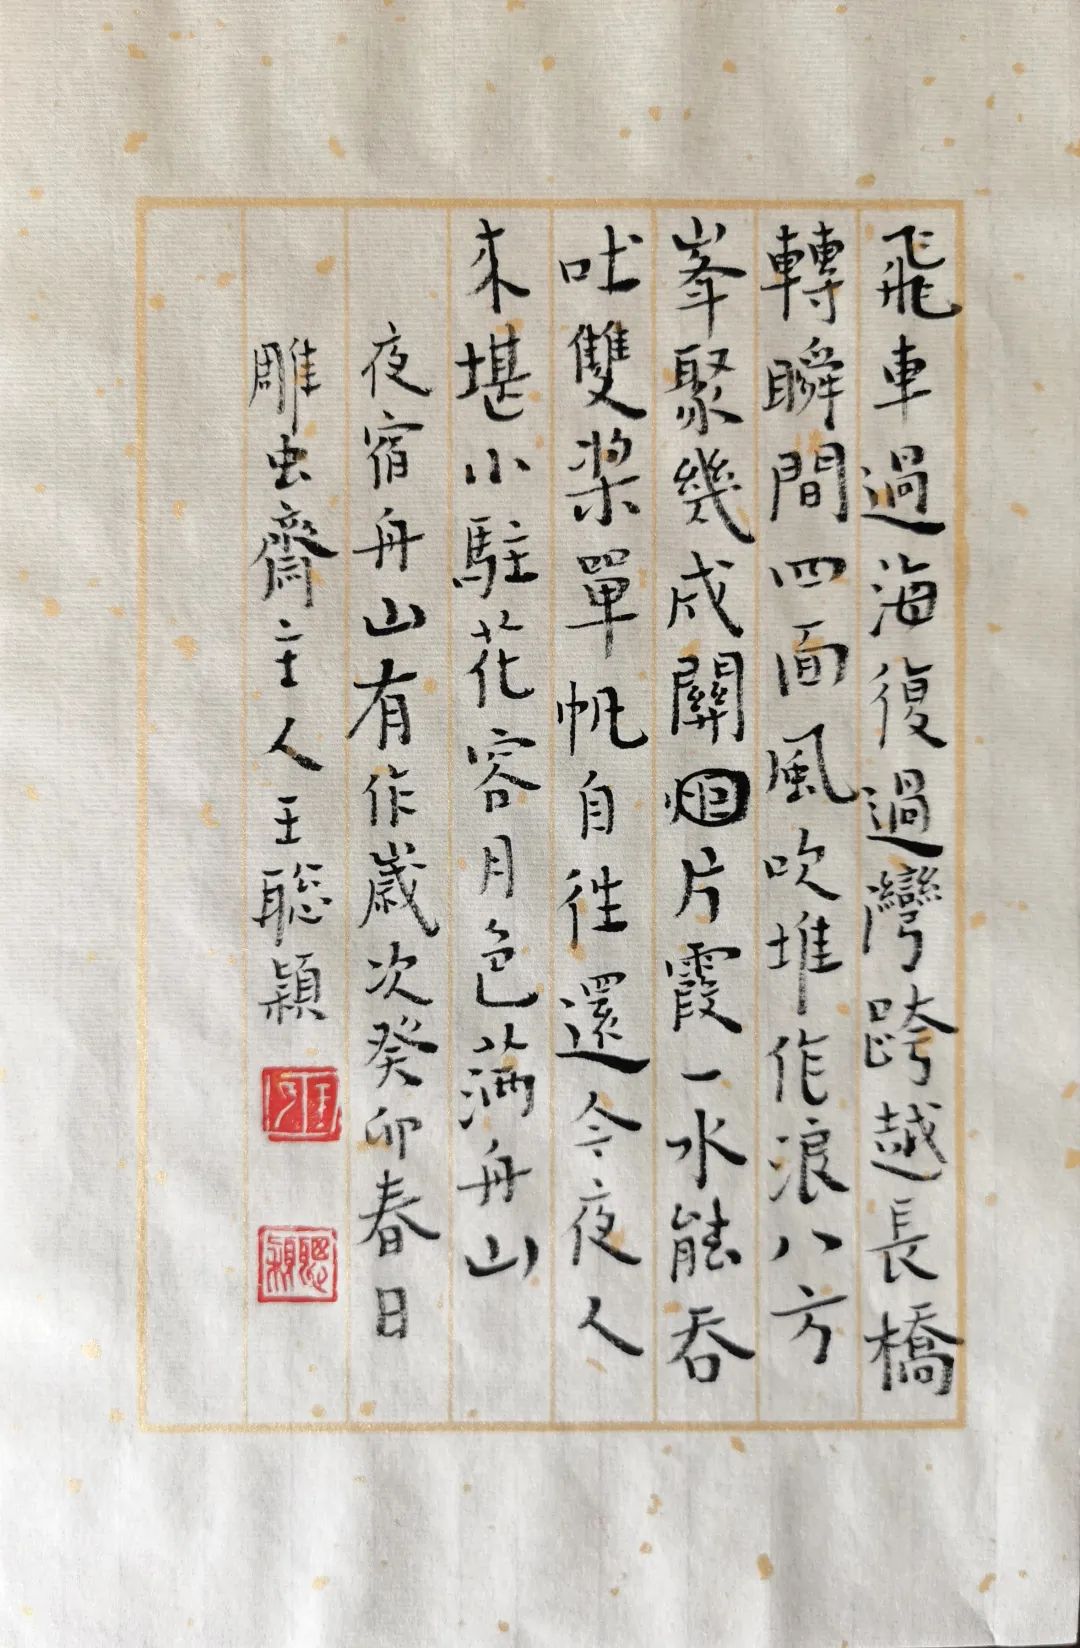 飛車過海復過灣跨越長橋
轉瞬間四面風吹堆作浪八方
峯聚幾成關烟片霞一水能吞
吐雙槳單帆自往還今夜人
來堪小駐花容月色滿舟山
夜宿舟山有作歲次癸卯春日
雕虫齋主人王聡穎
王
聰穎